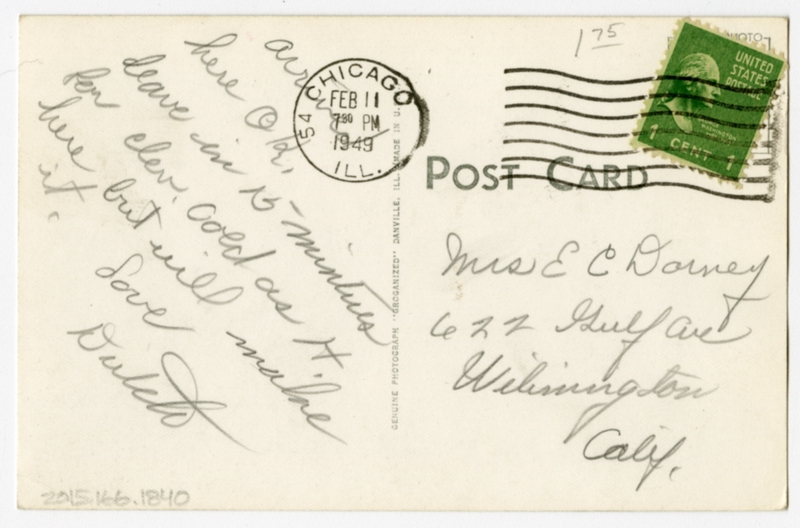 arrived
here O.K.
leave in 15 mintues
for clev. Cold as H
here but will make
it.
Love
CHICAGO
54
FEB 11
7 30 PM
1949
ILL.
1 75
UNITED
STATES
POSTAGE
WASHINGTON
1 CENT 1
POST CARD
GENUINE PHOTOGRAPH "GROGANIZED" DANVILLE, ILL. MADE IN U.S.
Mrs E C Dorney
622 Gulf Ave
Wilimington
Calif.
2015.166.1840